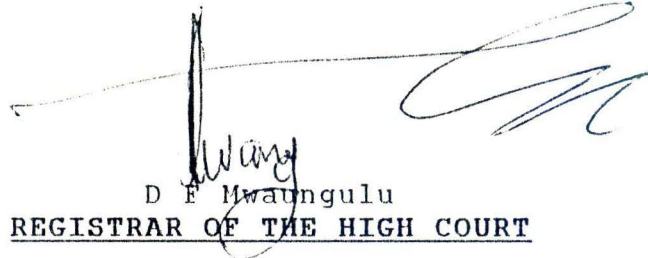 D F Mwaungulu
REGISTRAR OF THE HIGH COURT